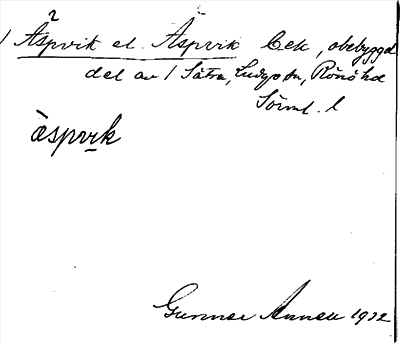 1 Äspvik el. Äspvik bek, obebyggd
del av 1 Sätra, Ludgo sn, Rönö hd
Sörml. l
àspvik
Gunnar Annell 1932